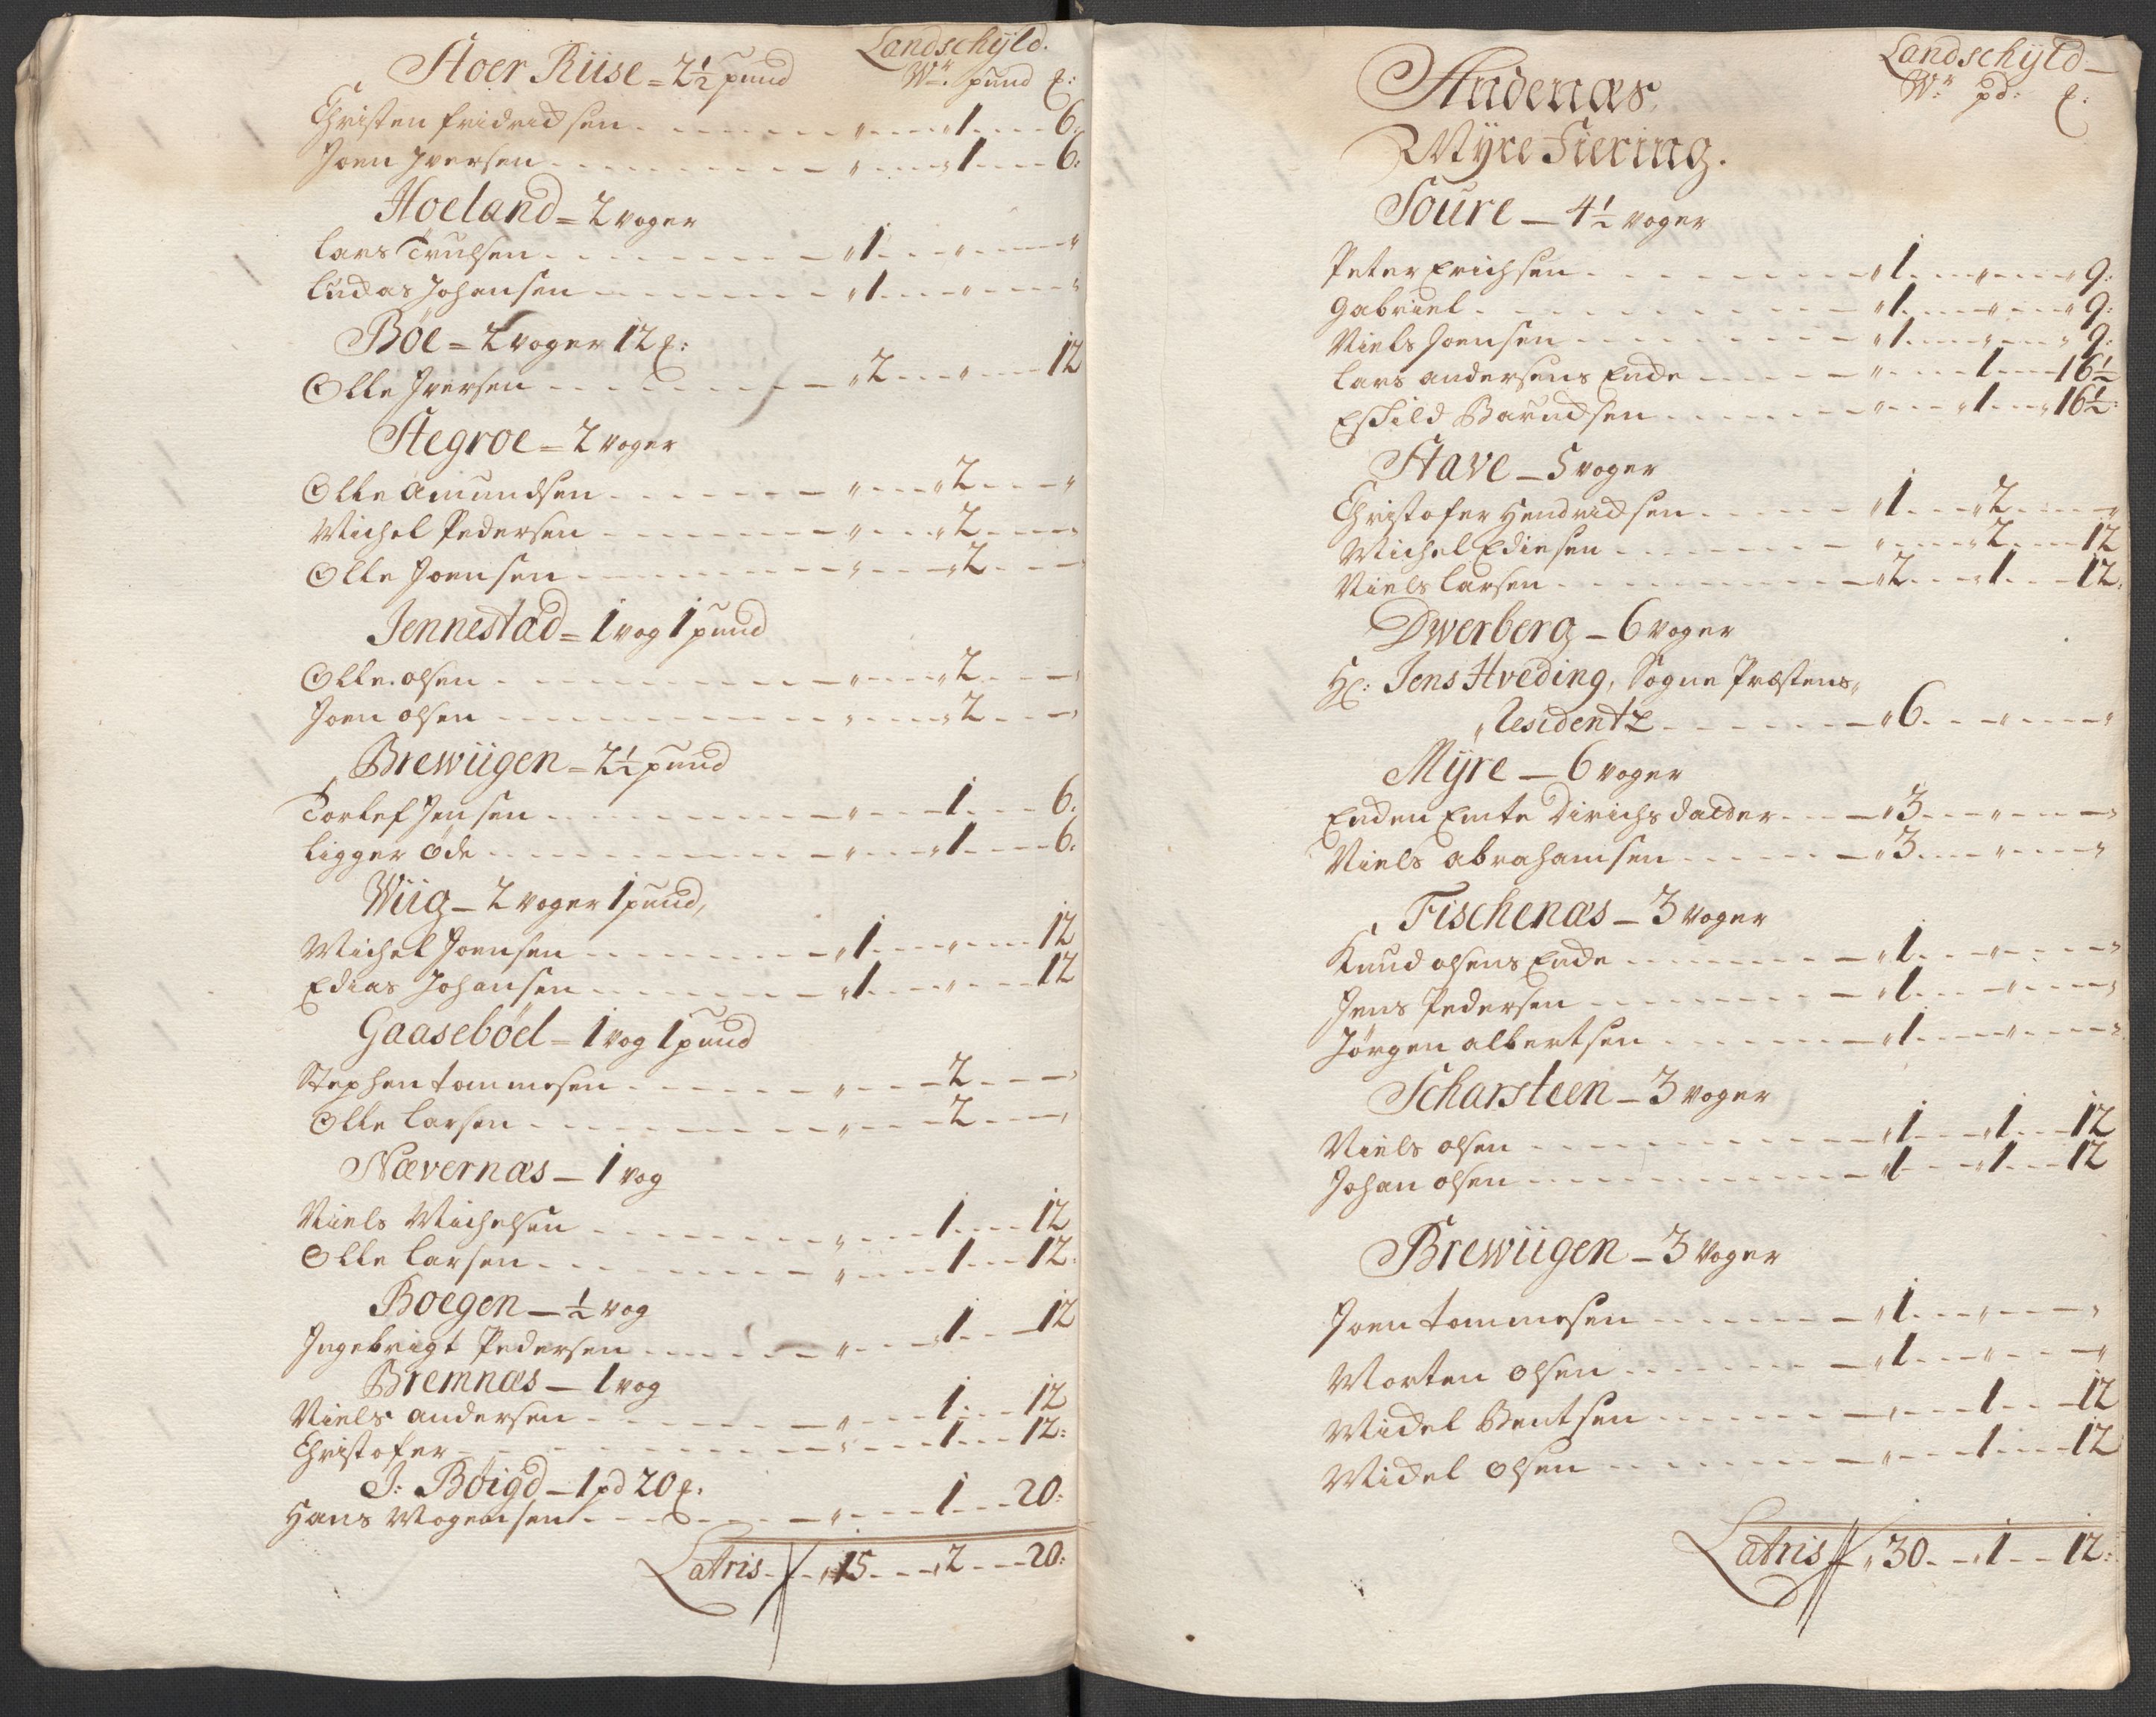 Landschyld.
Stoer Riise = 2½ pund Wr. pund £:
Christen fridrichsen " 1 6:
Joen Iversen " 1 6:
Hoeland = 2 voger
Lars Trulsen 1 " "
Ludas Johansen 1 " "
Böe = 2 voger 12 £:
Olle Iversen 2 " 12
Stegroe = 2 voger
Olle Amundsen " 2 "
Michel Pedersen " 2 "
Olle Joensen " 2 "
Jennestad = 1 vog 1 pund
Olle olsen " 2 "
Joen olsen " 2 "
Brewiigen = 2½ pund
Torlef Jensen " 1 6:
ligger öde " 1 6:
Wiig – 2 voger 1 pund,
Michel Joensen 1 " 12
Edias Johansen 1 " 12
Gaaseböel = 1 vog 1 pund
Stephen tommesen " 2 "
Olle Larsen " 2 "
Nævernæs – 1 vog
Niels Michelsen " 1 12
Olle Larsen " 1 12:
Boegen – ½ vog
Ingebrigt Pedersen " 1 12
Bremnæs – 1 vog
Niels andersen " 1 12
Christofer " 1 12:
J: Böigd – 1 pd 20 £.
Hans Mogensen " 1 20:
Latris 15 2 20:
Landschyld
Wr pd: £:
Andenæs
Myre Fiering.
Soure – 4½ voger
Peter Erichsen 1 " 9:
Gabriel 1 " 9:
Niels Joensen 1 " 9:
Lars andersens Enche " 1 16½
Eschild Barendsen " 1 16½:
Stave – 5 voger
Christofer Hendrichsen 1 2 "
Michel Ediesen " 2 12
Niels Larsen 2 1 12.
Dwerberg – 6 voger
Hr: Jens Hveding, Sogne Præstens
Residentz 6 " "
Myre – 6 voger
Enchen Emte Dirichs datter 3 " "
Niels abrahamsen 3 " "
Fischenæs – 3 voger
Knud olsens Enche 1 " "
Jens Pedersen 1 " "
Jörgen albertsen 1 " "
Scharsteen – 3 voger
Niels olsen 1 1 12
Johan olsen 1 1 12
Brewiigen – 3 Voger
Joen tommesen 1 " "
Morten olsen 1 " "
Michel Bentsen " 1 12
Michel olsen " 1 12
Latris 30 1 12: